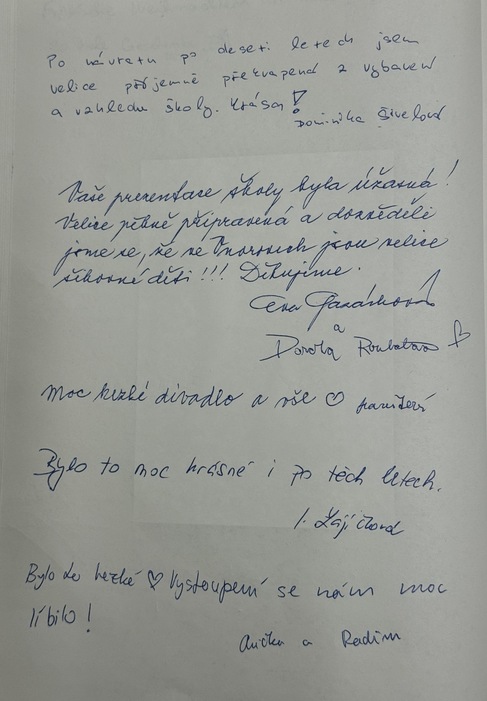 Po návratu po deseti letech jsem
velice příjemně překvapená z vybavení
a vzhledu školy. Krása!
Dominika Šívelová
Vaše prezentace školy byla úžasná!
Velice pěkně připravená a dozvěděli
jsme se, že ve Vnorovech jsou velice
šikovné děti!!! Děkujeme.
Eva
a
Dorota
Moc hezké divadlo a vše ♡
Bylo to moc krásné i po těch letech.
Bylo to hezké ♡ Vystoupení se nám moc
líbilo!
Anička a Radim